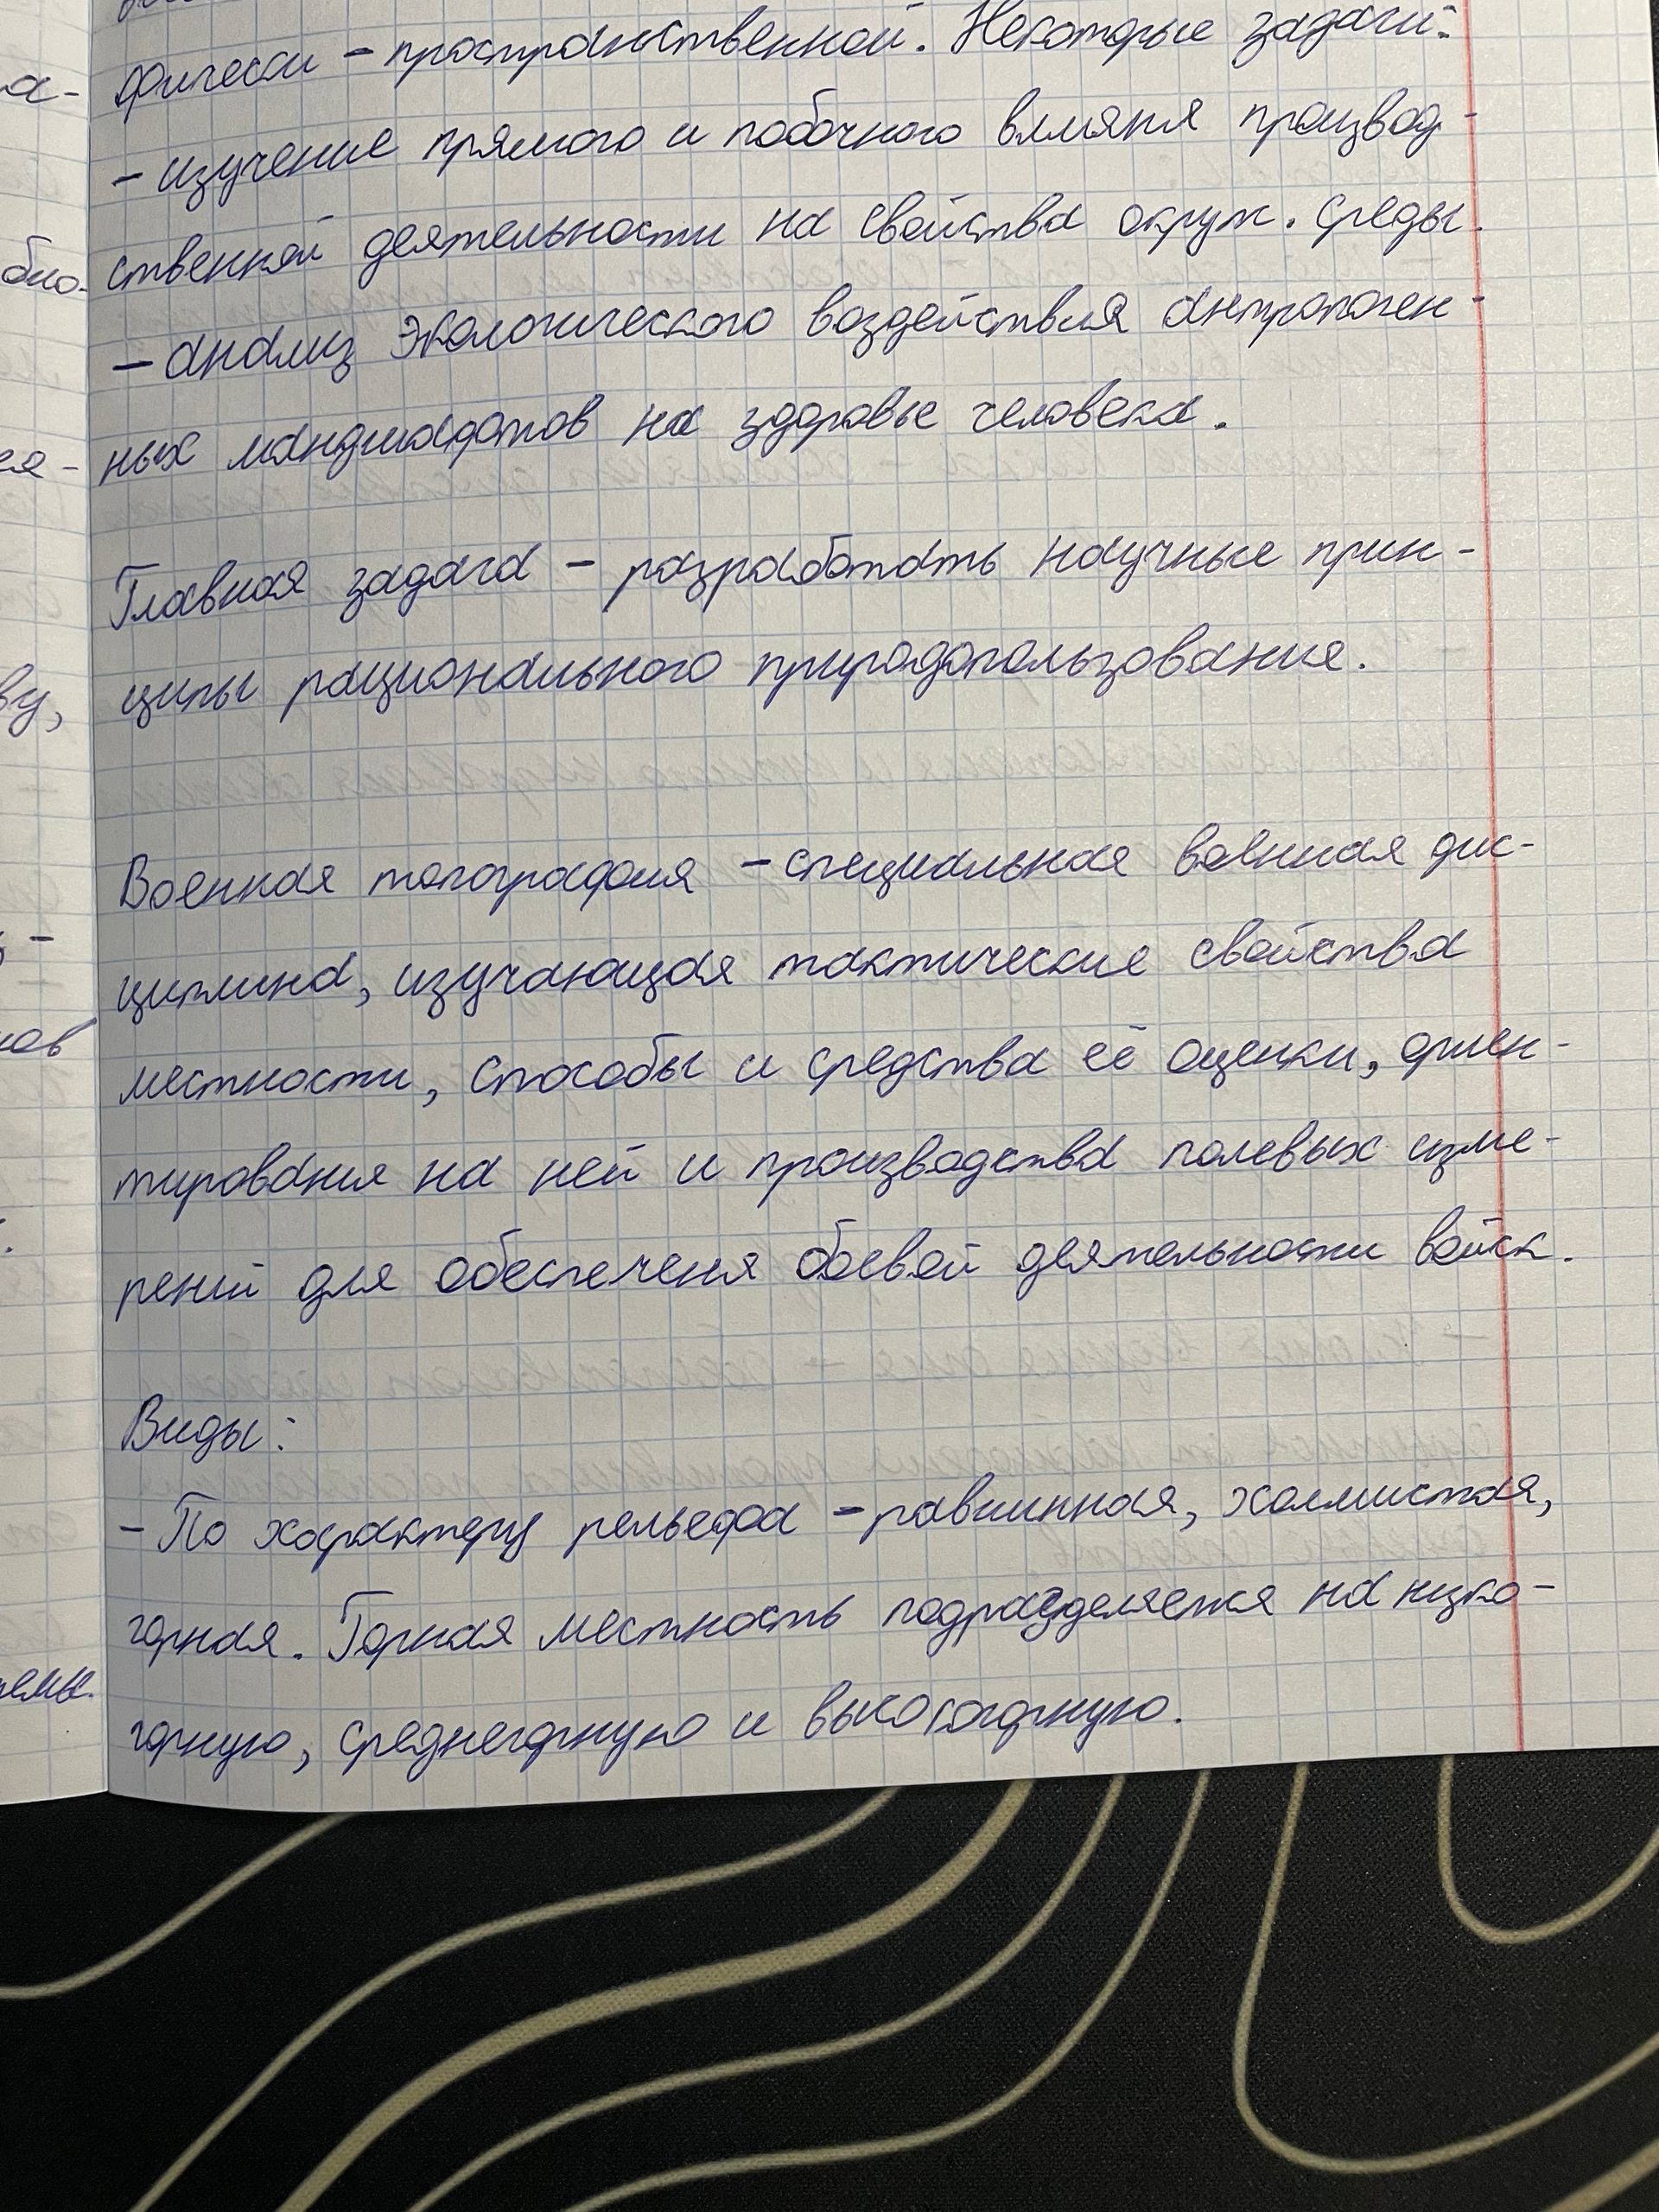 фически - пространственной. Некоторые задачи:
- изучение прямого и побочного влияня производ-
ственной деятельности на свойства окруж. среды.
- анализ экологического воздействия антропоген-
ных ландшафтов на здоровье человека.
Главная задача - разработать научные прин-
ципы рационального природопользование.
Военная топография - специальная военная дис-
циплина, изучающая тактические свойства
местности, способы и средства её оценки, ориен-
тирования на ней и производства полевых изме-
рений для обеспеченя боевой деятельности войск.
Виды:
- По характеру рельефа - равнинная, холмистая,
горная. Горная местность подразделяется на низко-
горную, среднегорную и высокогорную.